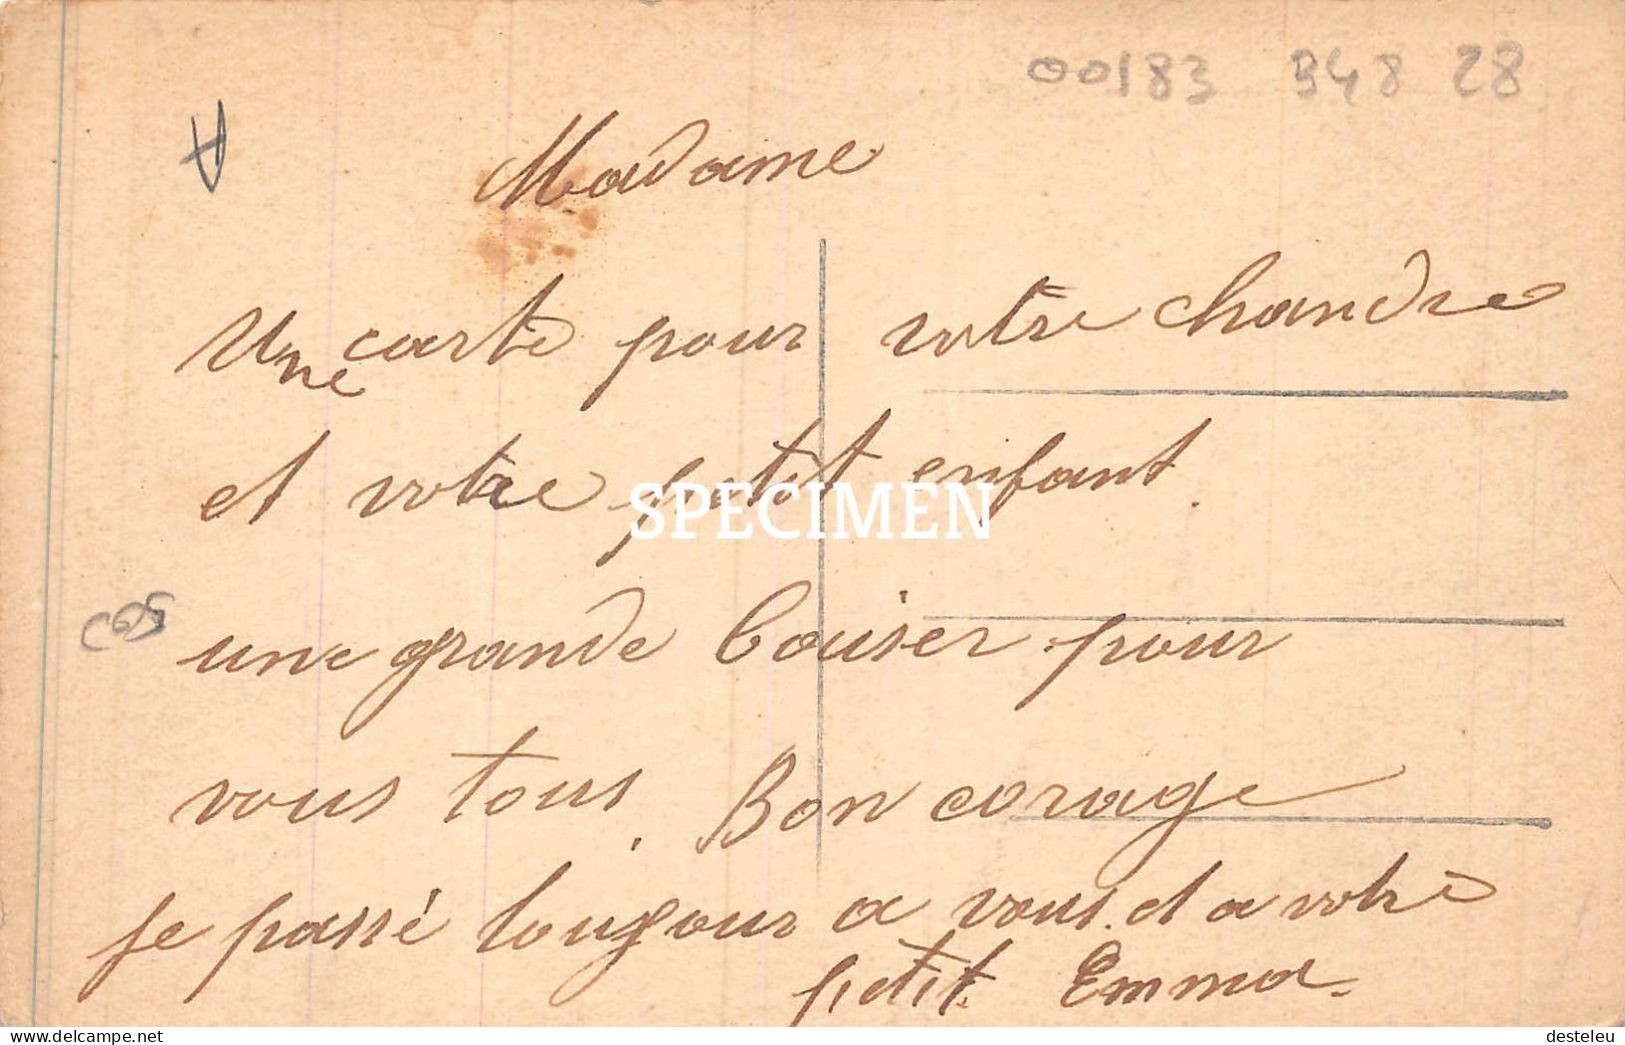 00183 348 28
Madame
Une carte pour votre chandre
et votre petit enfant.
SPECIMEN
une grande bouiser pour
vous tous. Bon corage
je passé tougour a vous et a votre
petit Emma.
delcampe.net
desteleu